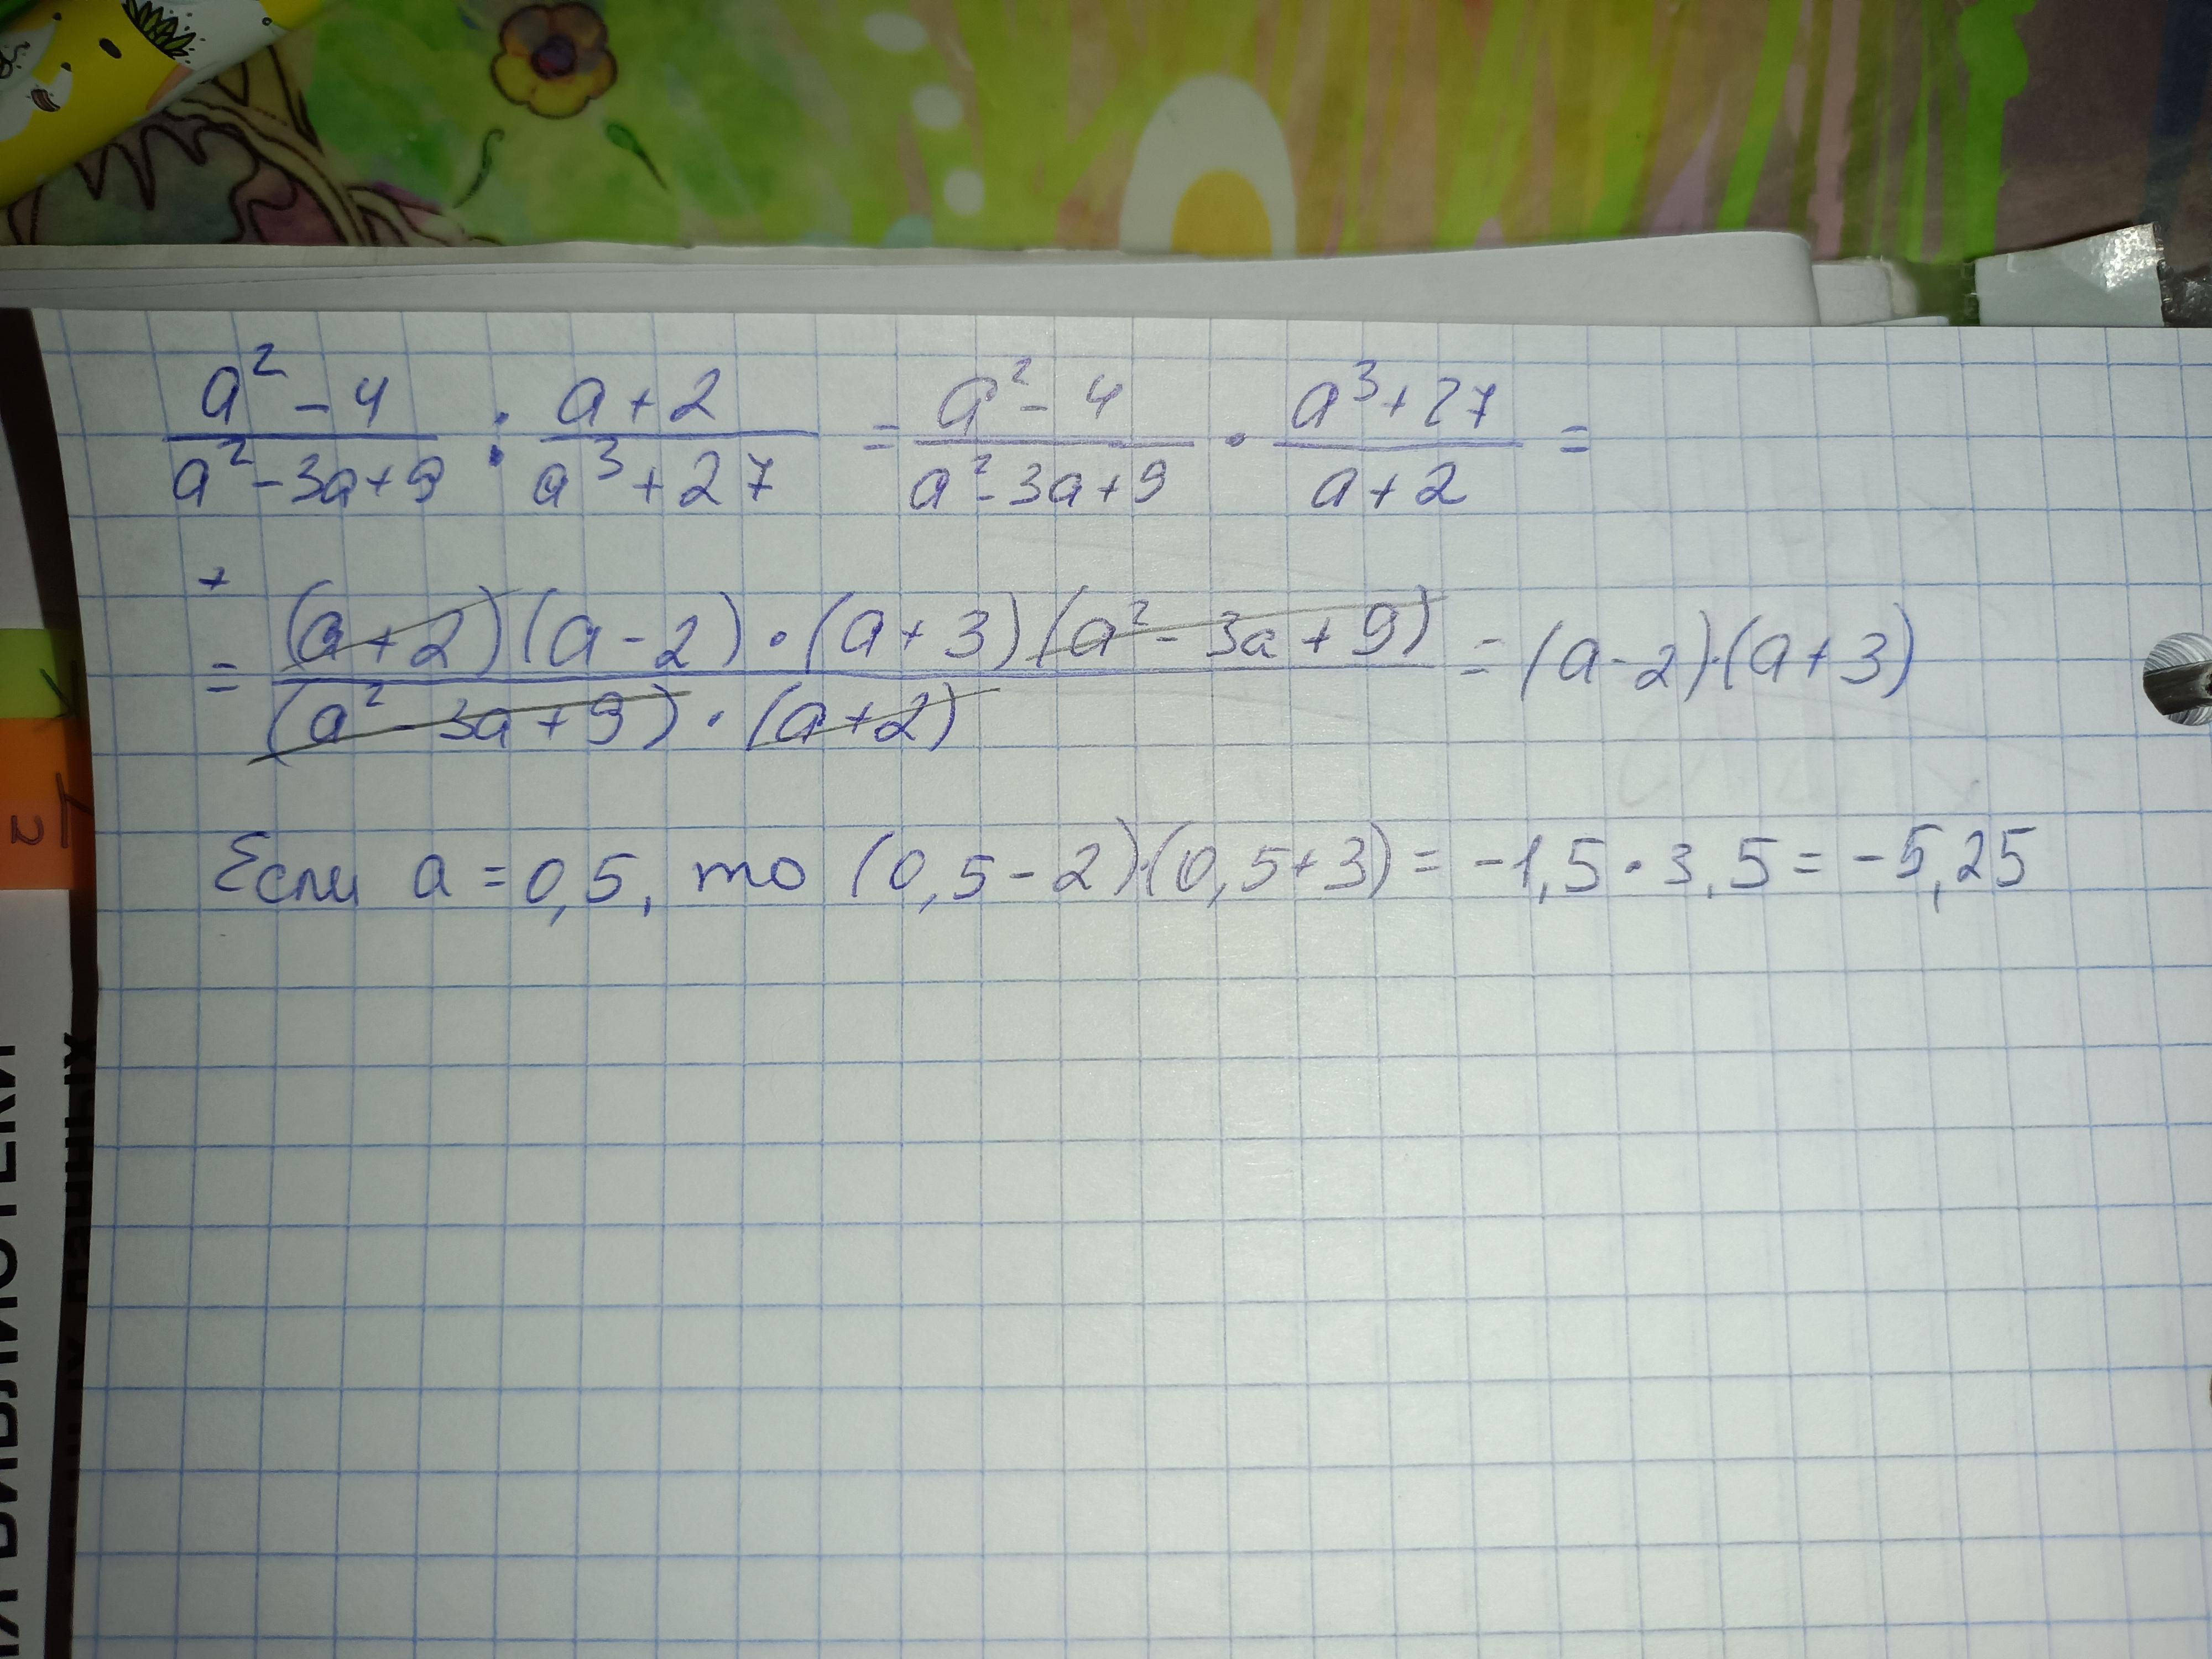 a² - 4 / a² - 3a + 9 : a + 2 / a³ + 27 = a² - 4 / a² - 3a + 9 · a³ + 27 / a + 2 =
= (a + 2)(a - 2) · (a + 3)(a² - 3a + 9) / (a² - 3a + 9) · (a + 2) = (a - 2)·(a + 3)
Если a = 0,5, то (0,5 - 2)·(0,5 + 3) = -1,5 · 3,5 = -5,25